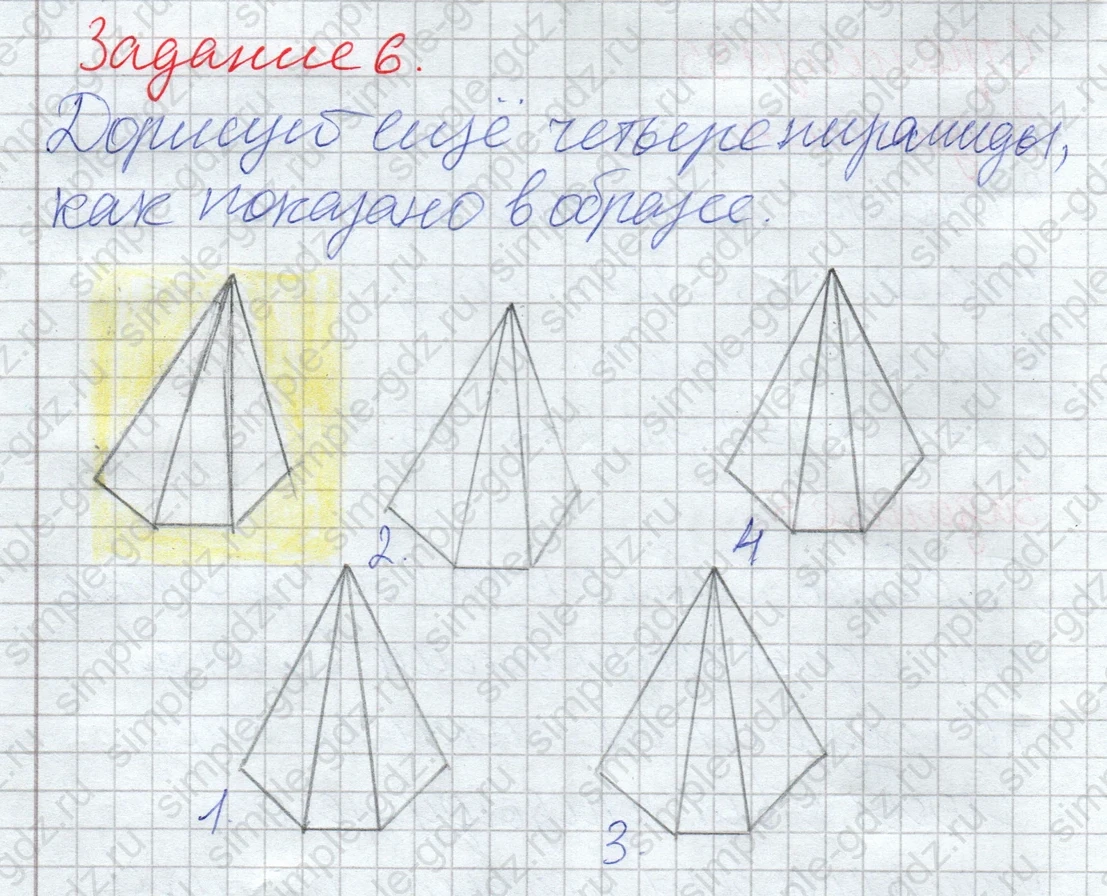 Задание 6.
Дорисуй ещё четыре пирамиды,
как показано в образце.
2.
4
1.
3.
simple-gdz.ru